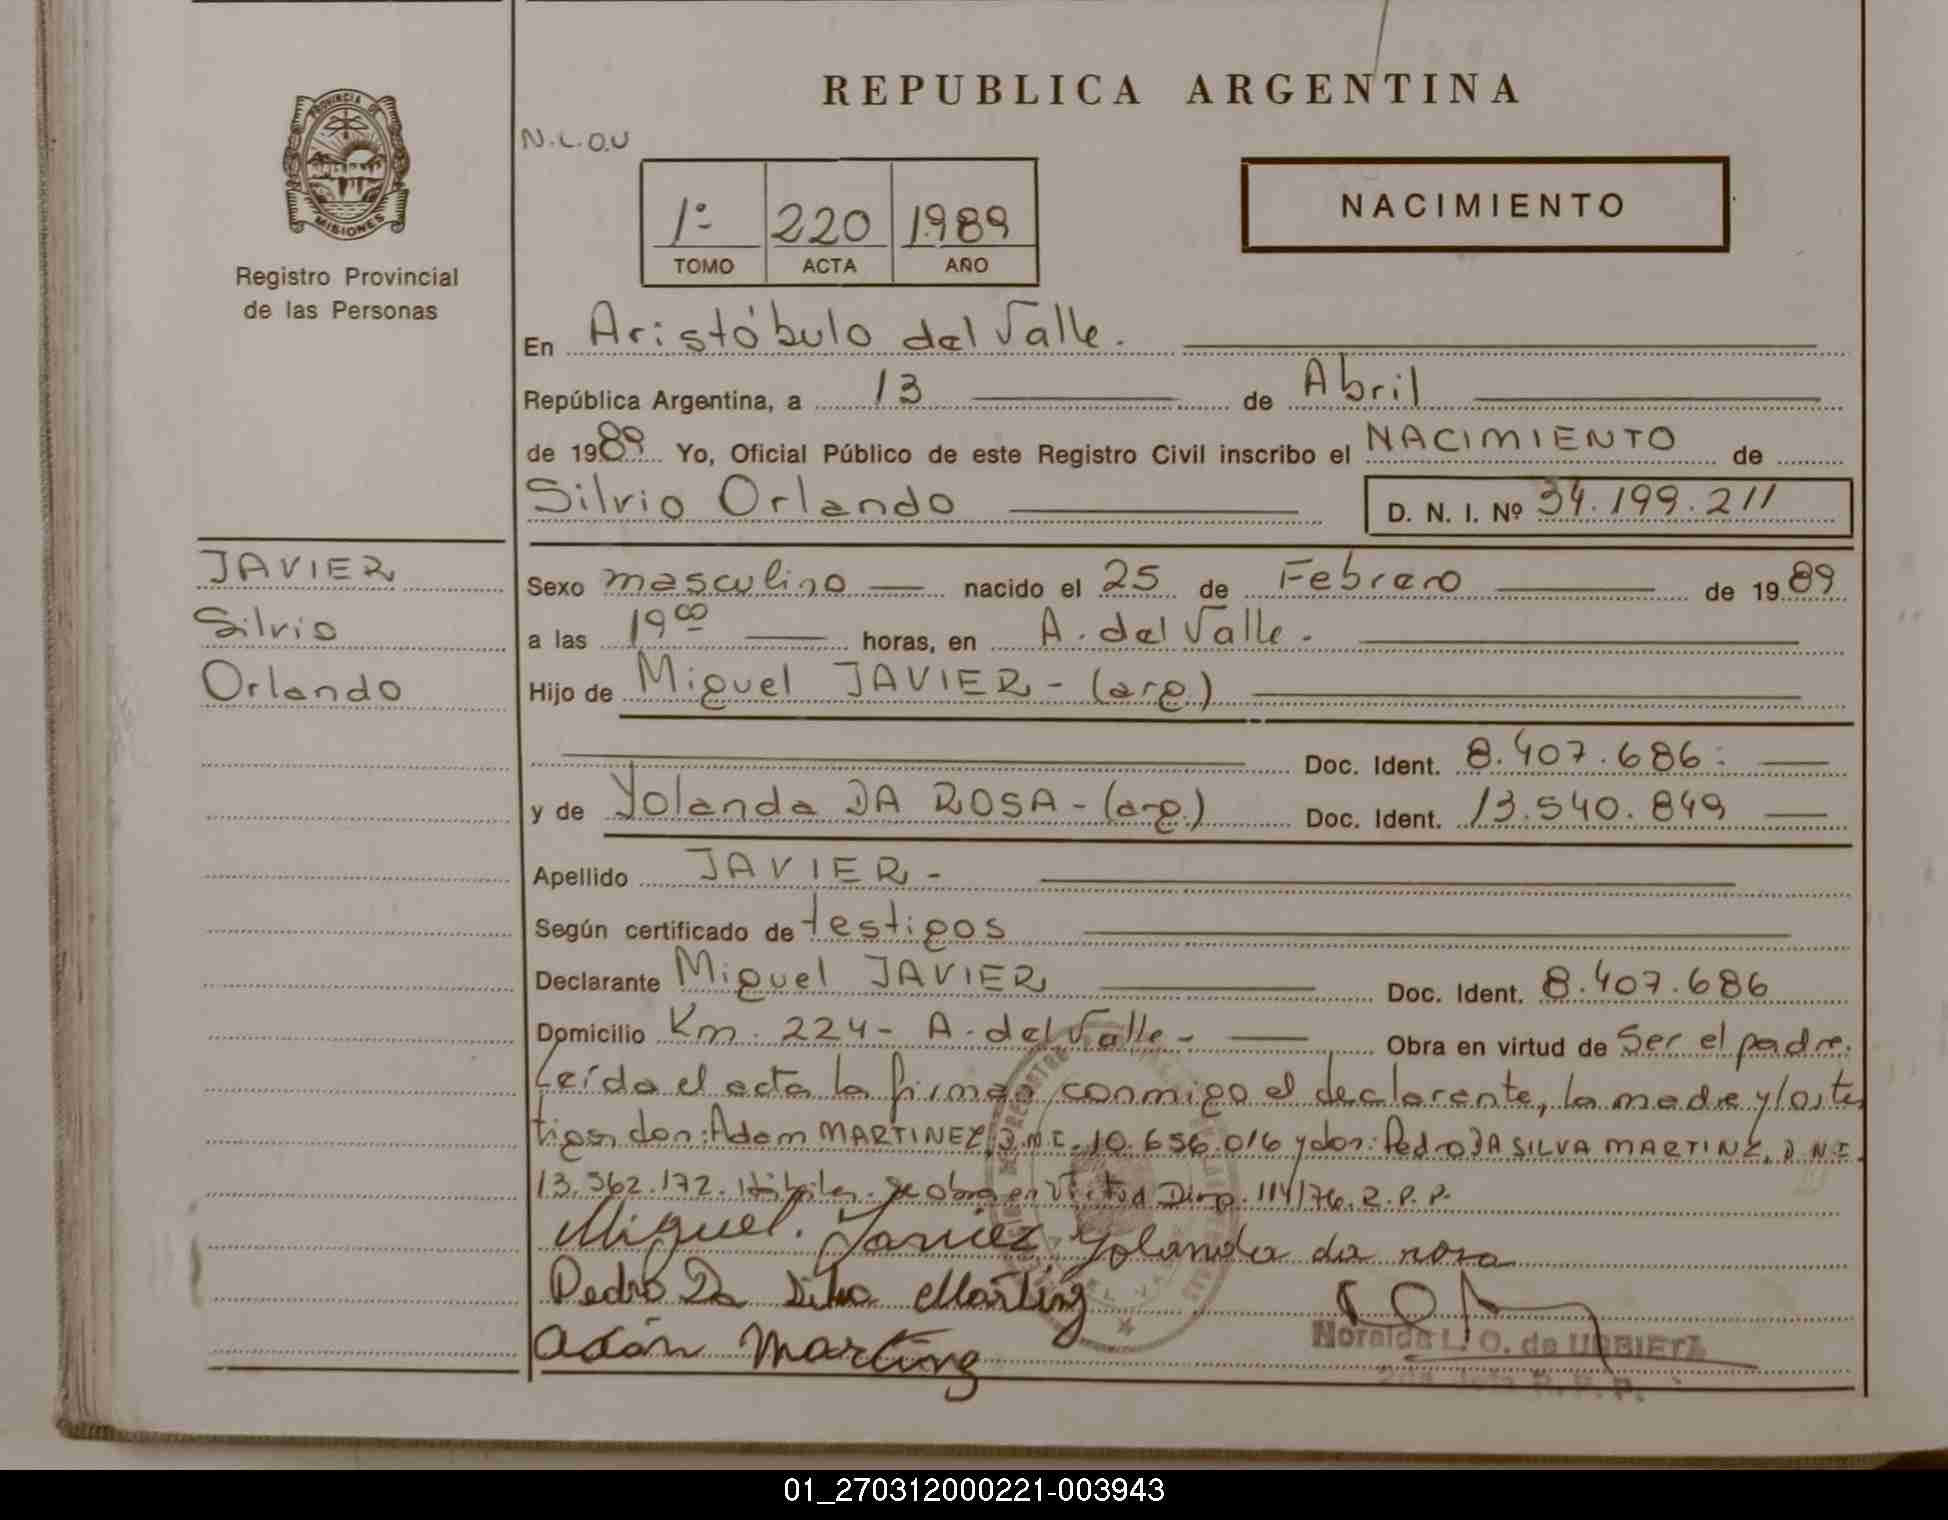 PROVINCIA DE
MISIONES
Registro Provincial
de las Personas
REPUBLICA ARGENTINA
N.L.O.U
1º 220 1989
TOMO ACTA AÑO
NACIMIENTO
En Aristóbulo del Valle.
República Argentina, a 13 de Abril
de 1989 Yo, Oficial Público de este Registro Civil inscribo el NACIMIENTO de
Silvio Orlando D. N. I. Nº 34.199.211
JAVIER
Silvio
Orlando
Sexo masculino nacido el 25 de Febrero de 1989
a las 19 00 horas, en A. del Valle.
Hijo de Miguel JAVIER - (arg.)
Doc. Ident. 8.407.686.
y de Yolanda DA ROSA - (arg.) Doc. Ident. 13.540.849
Apellido JAVIER -
Según certificado de testigos
Declarante Miguel JAVIER Doc. Ident. 8.407.686
Domicilio Km. 224 - A. del Valle - Obra en virtud de Ser el padre.
Leída el acta la firman conmigo el declarante, la madre y los tes
tigos don: Adam MARTINEZ, D.N.I. 10.656.016 y don: Pedro DA SILVA MARTINZ, D.N.I.
13.562.172. Hábiles. Se obra en Virtud Disp. 114/76. R.P.P.
Miguel. Javier Yolanda da rosa
Pedro Da Silva Martinz
Adán Martinz
Noralda L. O. de URBIETA
R. P. P.
01_270312000221-003943